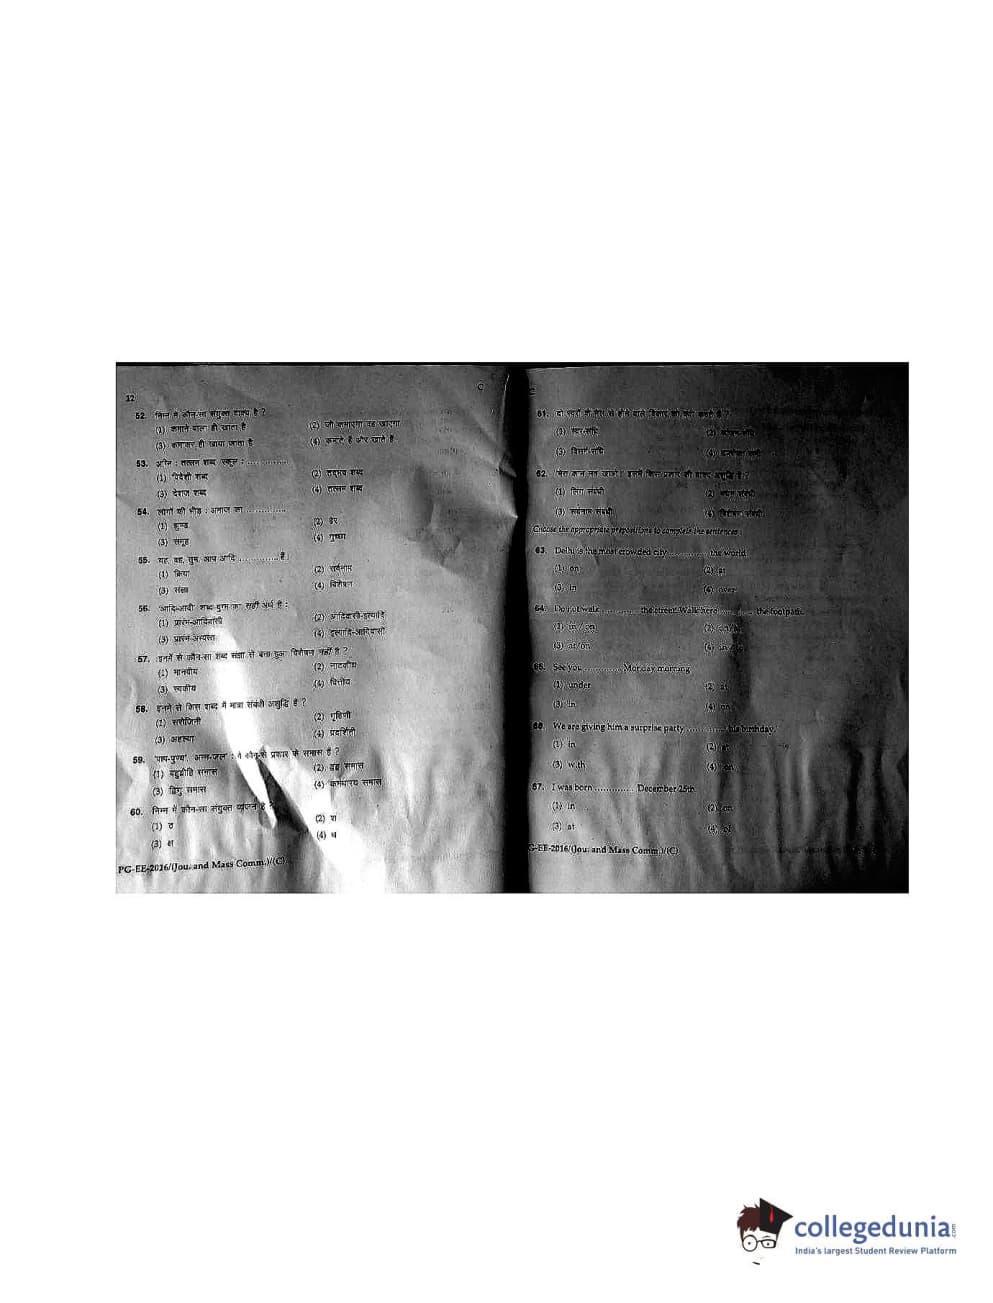 12
C
52. निम्न में कौन-सा संयुक्त वाक्य है ?
(1) कमाने वाला ही खाता है
(2) जो कमाएगा वह खाएगा
(3) कमाकर ही खाया जाता है
(4) कमाते हैं और खाते हैं
53. अग्नि : तत्सम शब्द स्कूल : ..............
(1) विदेशी शब्द
(2) तद्भव शब्द
(3) देशज शब्द
(4) तत्सम शब्द
54. लोगों की भीड़ : अनाज का .............
(1) झुण्ड
(2) ढेर
(3) समूह
(4) गुच्छा
55. यह, वह, तुम, आप आदि .............. हैं
(1) क्रिया
(2) सर्वनाम
(3) संज्ञा
(4) विशेषण
56. 'आदि-आदी' शब्द-युग्म का सही अर्थ है :
(1) प्रारंभ-आदिवासी
(2) आदिवासी-इत्यादि
(3) प्रारंभ-अभ्यस्त
(4) इत्यादि-आदिवासी
57. इनमें से कौन-सा शब्द संज्ञा से बना हुआ विशेषण नहीं है ?
(1) मानवीय
(2) नाटकीय
(3) स्वकीय
(4) वित्तीय
58. इनमें से किस शब्द में मात्रा संबंधी अशुद्धि है ?
(1) सरोजिनी
(2) गृहिणी
(3) अहल्या
(4) प्रदर्शिनी
59. 'पाप-पुण्य', अन्न-जल' : में कौन-से प्रकार के समास हैं ?
(1) बहुव्रीहि समास
(2) द्वंद्व समास
(3) द्विगु समास
(4) कर्मधारय समास
60. निम्न में कौन-सा संयुक्त व्यंजन है ?
(1) ठ
(2) श
(3) क्ष
(4) ध
PG-EE-2016/(Jou. and Mass Comm.)/(C)
61. दो स्वरों के मेल से होने वाले विकार को क्या कहते हैं ?
(1) स्वर-संधि
(2) व्यंजन-संधि
(3) विसर्ग-संधि
62. इसमें किस प्रकार की वाक्य अशुद्धि है ?
(1) लिंग संबंधी
(2) वचन संबंधी
(3) सर्वनाम संबंधी
(4) विशेषण संबंधी
Choose the appropriate prepositions to complete the sentences :
63. Delhi is the most crowded city .............. the world
(1) on
(2) at
(3) in
(4) over
64. Do not walk ............. the street. Walk here ............. the footpath.
(1) in / on
(3) at/on
65. See you .............. Monday morning
(1) under
(2) at
(3) in
(4) on
66. We are giving him a surprise party .............. his birthday.
(1) in
(2) at
(3) with
(4) on
67. I was born .............. December 25th
(1) in
(2) on
(3) at
(4) of
G-EE-2016/(Jou. and Mass Comm.)/(C)
collegedunia.com
India's largest Student Review Platform